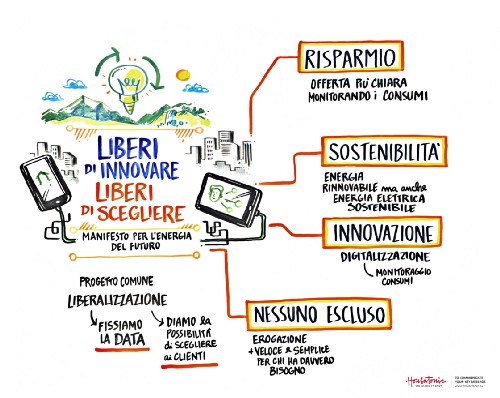 LIBERI
DI INNOVARE
LIBERI
DI SCEGLIERE
MANIFESTO PER L'ENERGIA
DEL FUTURO
PROGETTO COMUNE
LIBERALIZZAZIONE
FISSIAMO
LA DATA
DIAMO la
POSSIBILITÀ
di SCEGLIERE
ai CLIENTI
RISPARMIO
OFFERTA PIÙ CHIARA
MONITORANDO i CONSUMI
SOSTENIBILITA'
ENERGIA
RINNOVABILE ma anche
ENERGIA ELETTRICA
SOSTENIBILE
INNOVAZIONE
DIGITALIZZAZIONE
MONITORAGGIO
CONSUMI
NESSUNO ESCLUSO
EROGAZIONE
+ VELOCE e SEMPLICE
PER CHI HA DAVVERO
BISOGNO
Housatonic
TO COMMUNICATE
YOUR KEY MESSAGE